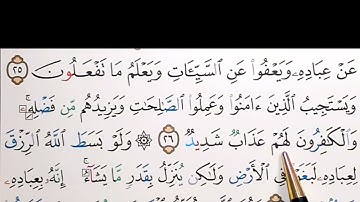 عَنْ عِبَادِهِۦ وَيَعْفُوا۟ عَنِ السَّيِّـَٔاتِ وَيَعْلَمُ مَا تَفْعَلُونَ ٢٥
وَيَسْتَجِيبُ الَّذِينَ ءَامَنُوا۟ وَعَمِلُوا۟ الصَّـٰلِحَـٰتِ وَيَزِيدُهُم مِّن فَضْلِهِۦۚ
وَالْكَـٰفِرُونَ لَهُمْ عَذَابٌ شَدِيدٌ ٢٦ ۞ وَلَوْ بَسَطَ اللَّهُ الرِّزْقَ
لِعِبَادِهِۦ لَبَغَوْا۟ فِى الْأَرْضِ وَلَـٰكِن يُنَزِّلُ بِقَدَرٍ مَّا يَشَآءُۚ إِنَّهُۥ بِعِبَادِهِۦ